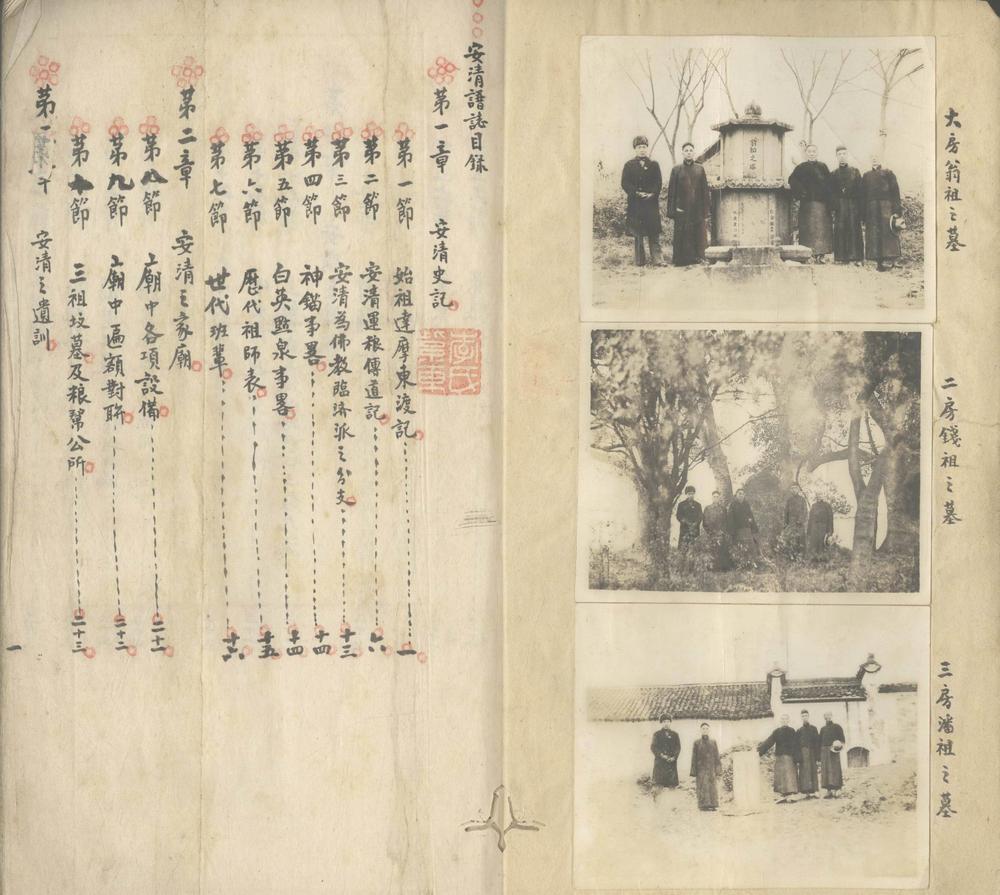 大房翁祖之墓
翁祖之塔
二房錢祖之墓
三房潘祖之墓
安清譜誌目錄
第一章 安清史記
第一節 始祖達摩東渡記 一
第二節 安清運粮傳道記 六
第三節 安清為佛教臨济派之分支 十三
第四節 神錨事畧 十四
第五節 白英點泉事畧 十四
第六節 歷代祖師表 十五
第七節 世代班輩 十六
第二章 安清之家廟
第八節 廟中各項設備 二十一
第九節 廟中匾額對聯 二十二
第十節 三祖坟墓及粮幫公所 二十三
安清之遺訓
一